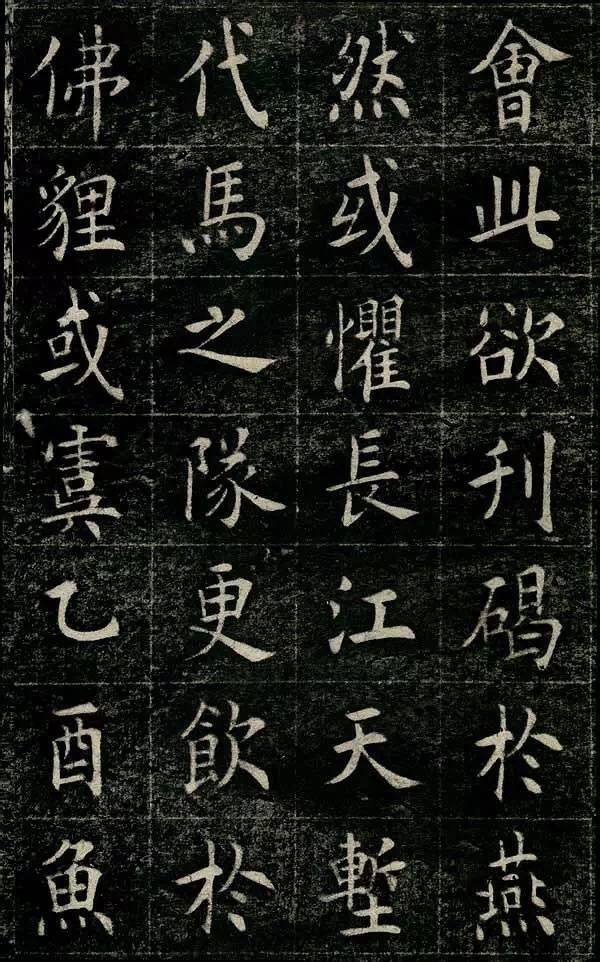 會此欲刋碣於燕
然或懼長江天塹
代馬之隊更飲於
佛貍或虞乙酉魚